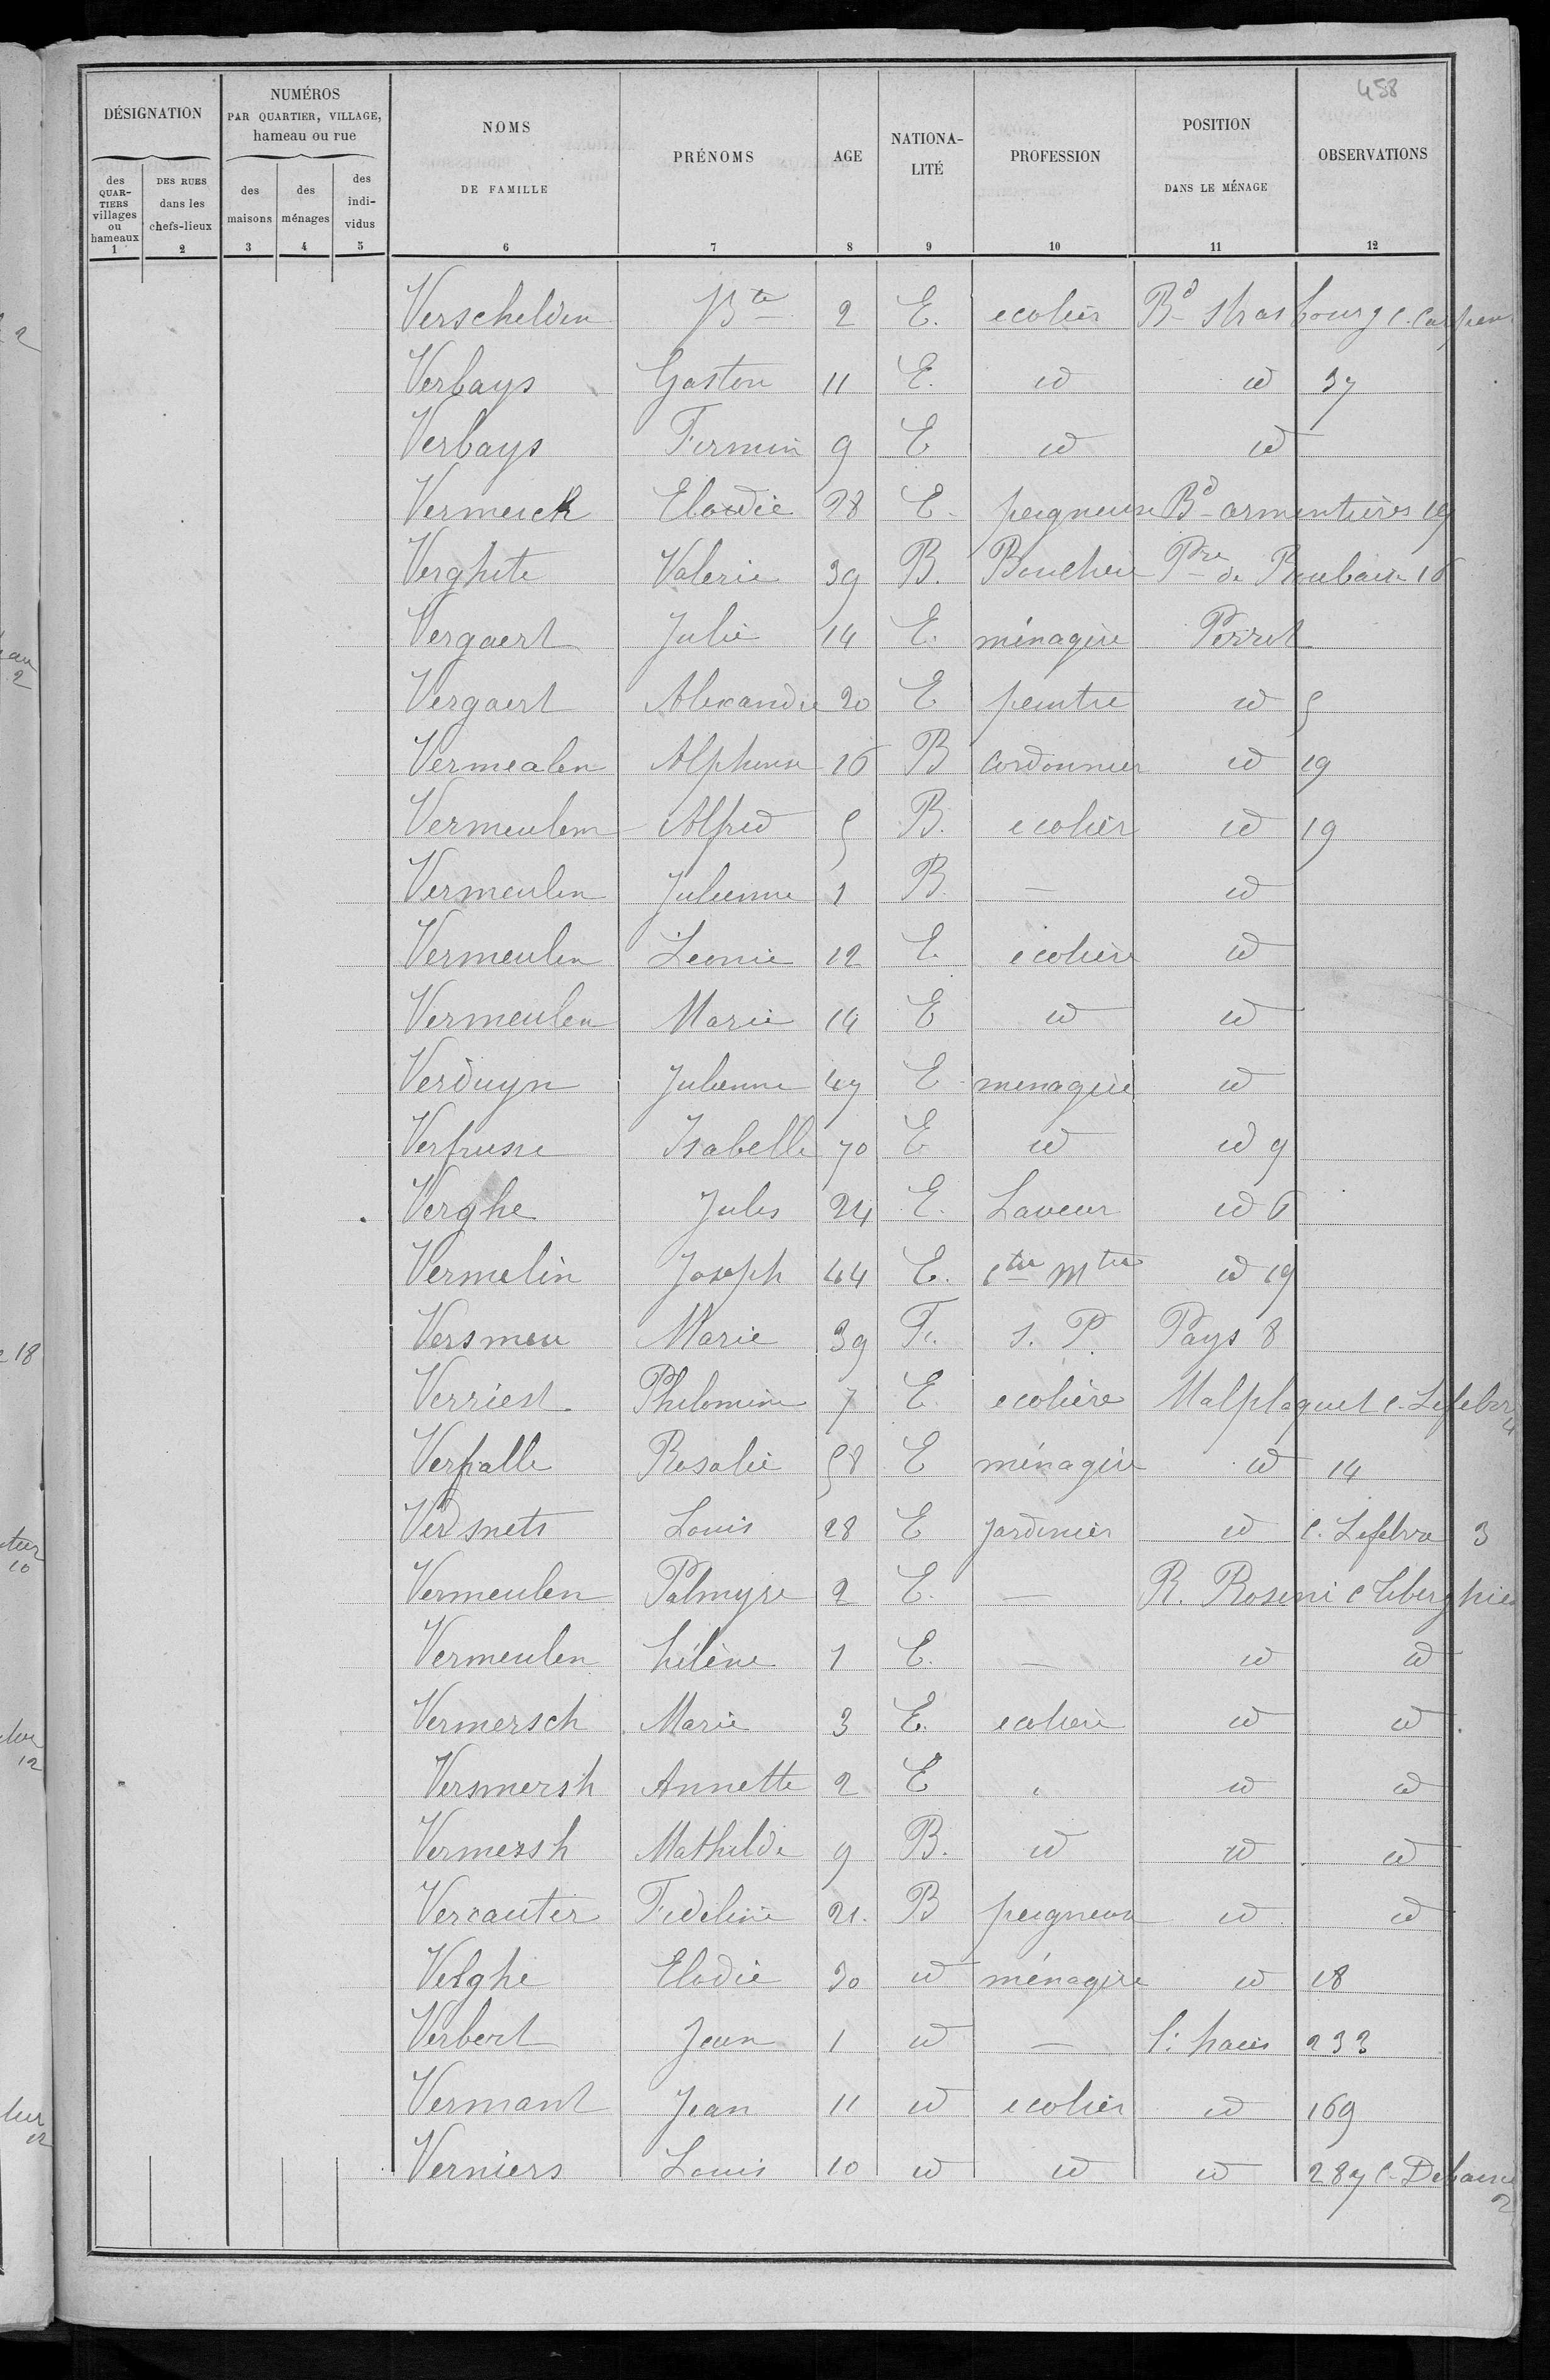 458
DÉSIGNATION
NUMÉROS
PAR QUARTIER, VILLAGE,
hameau ou rue
NOMS
DE FAMILLE
PRÉNOMS
AGE
NATIONA-
LITÉ
PROFESSION
POSITION
DANS LE MÉNAGE
OBSERVATIONS
des
QUAR-
TIERS
villages
ou
hameaux
DES RUES
dans les
chefs-lieux
des
maisons
des
ménages
des
indi-
vidus
1 2 3 4 5 6 7 8 9 10 11 12
Verschelden Bte 2 E. ecolier Bd Strasbourg c.
Verbays Gaston 11 E. id id 37
Verbays Firmin 9 E id id
Vermeick Elodie 28 E. peigneuse Bd armentières 19
Verghete Valerie 39 B. Bouchere de Roubaix 16
Vergaert Julie 14 E. ménagère Perrot
Vergaert Alexandre 20 E peintre id 5
Vermealen Alphonse 16 B Cordonnier id 19
Vermeulem Alfred 5 B. ecolier id 19
Vermeulen Julienne 1 B. — id
Vermeulen Leonie 12 E. ecolière id
Vermeulen Marie 14 E id id
Verduyn Julienne 47 E menagère id
Isabelle 70 E id id 9
Verghe Jules 24 E. Laveur id 6
Vermelin Joseph 44 E. ctre mtre id 19
Versmeu Marie 39 Fr. s. P. Pays 8
Verriest Philomène 7 E. ecolière Malplaquet c. Lefebvre 4
Verfalle Rosalie 58 E ménagère id 14
Verdsnets Louis 28 E jardinier id c. Lefebvre 3
Vermeulen Palmyre 2 E. — R. Rosini c Liberghien
Vermeulen hélène 1 E. — id id
Vermersch Marie 3 E. ecoliere id id
Versmersh Annette 2 E " id id
Vermersh Mathilde 9 B. id id id
Vercauter Fideline 21. B peigneuse id id
Velghe Elodie 30 id ménagère id 18
Verbert Jean 1 id — 233
Vermant Jean 11 id ecolier id 169
Verniers Louis 10 id id id 287 c. 2